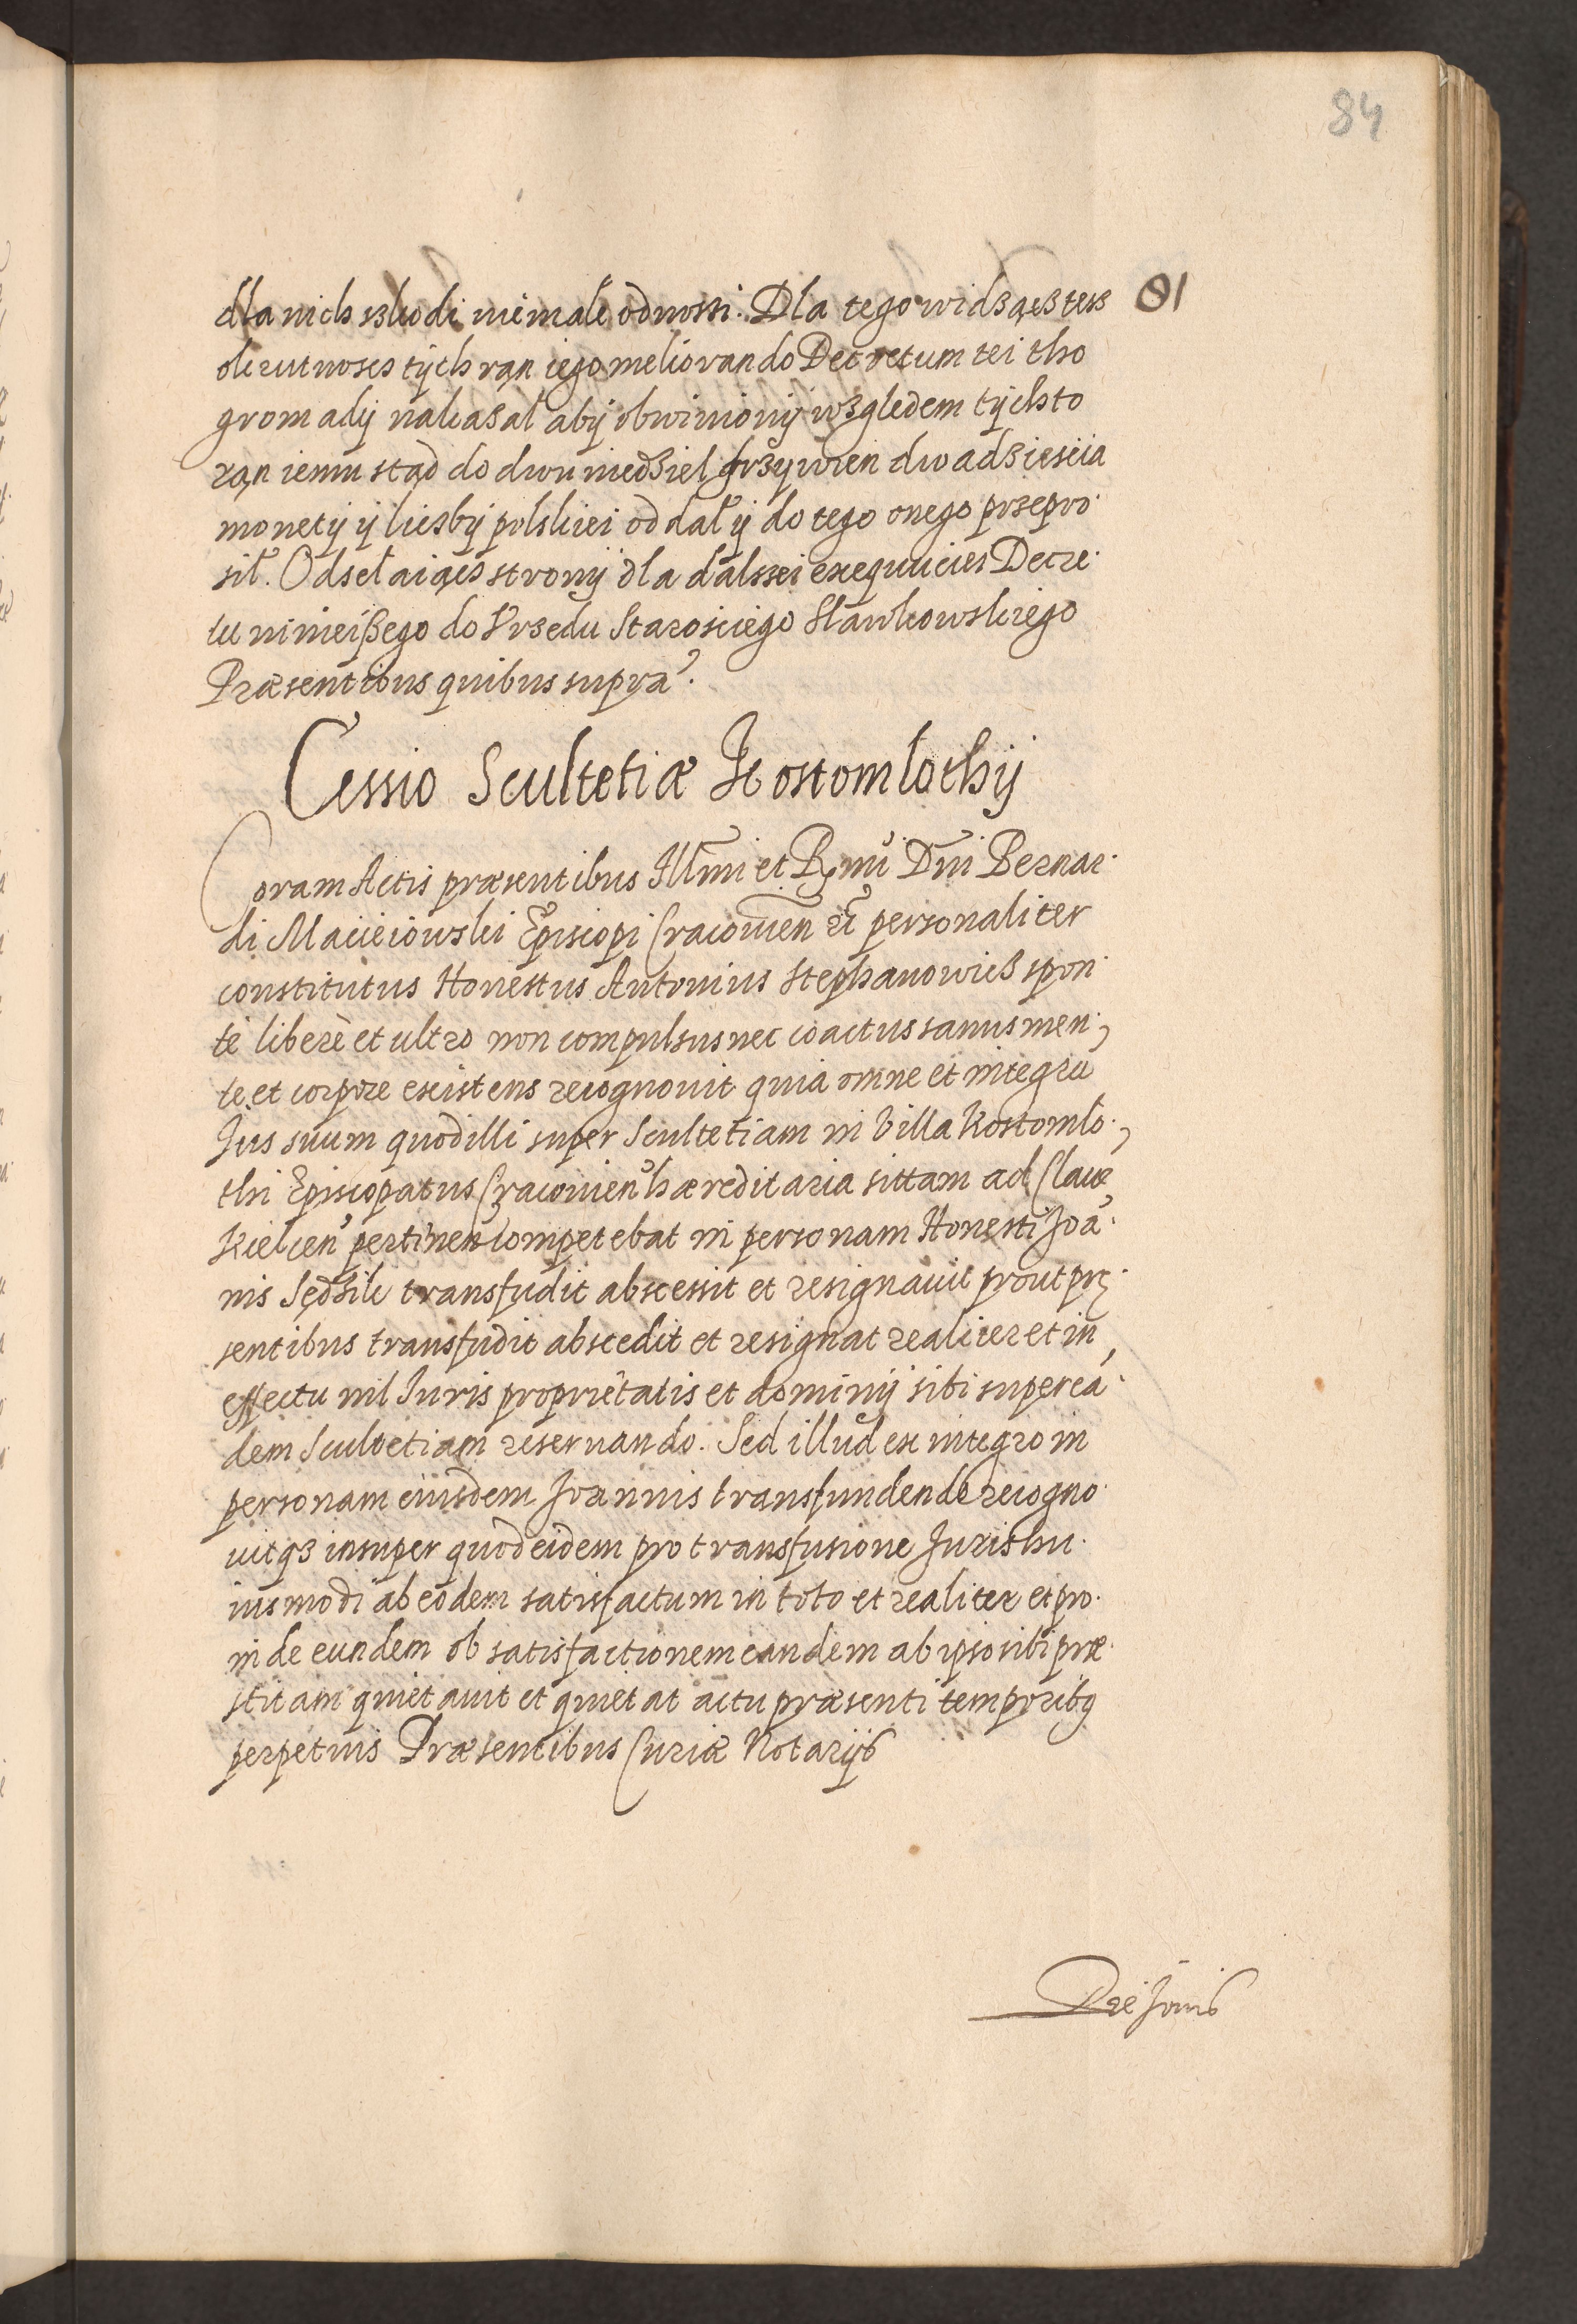 84
dla nich szkodi niemałe odnossi. Dla tego widząc tesz
okrutnoscz tych ran iego meliorando Decretum tei tho
gromady nakazał aby obwiniony względem tych to
ran iemu stąd do dwu niedziel grzywien dwadziescia
monety y liczby polskiei oddał y do tego onego przepro-
sił. Odsełaiącz strony dla dalszei exequuciei Decre-
tu ninieiszego do Vrzedu Starosciego Slawkowskiego
Præsentibus quibus supra.
Cessio Scultetiæ Kostomlothij
Coram Actis præsentibus Illmi et Rmi Dni Bernar-
di Macieiowski Episcopi Cracouien etc personaliter
constitutus Honestus Antonius Stephanowicz spon-
te libere et ultro non compulsus nec coactus sanus men-
te et corpore existens recognouit quia omne et integrũ
Jus suum quod illi super Scultetiam in Villa Kostomlo-
thi Episcopatus Cracouien hæreditaria sittam ad Claue
Kielcen pertinen competebat in personam Honesti Joã-
nis Sędzik transfudit abscessit et resignauit prout prę-
sentibus transfudit abscedit et resignat realiter et in
effectu nil Iuris proprietatis et dominij sibi super ea-
dem Scultetiam reseruando. Sed illud ex integro in
personam eiusdem Joannis transfundendo recogno-
uitqз insuper quod eidem pro transfusione Juris hu-
iusmodi ab eodem satisfactum in toto et realiter et pro-
inde eundem ob satisfactionem eandem ab ipso sibi præ-
stitam quietauit et quietat actu præsenti temporibꝰ
perpetuis Præsentibus Curiæ Notarijs
Die Jouis